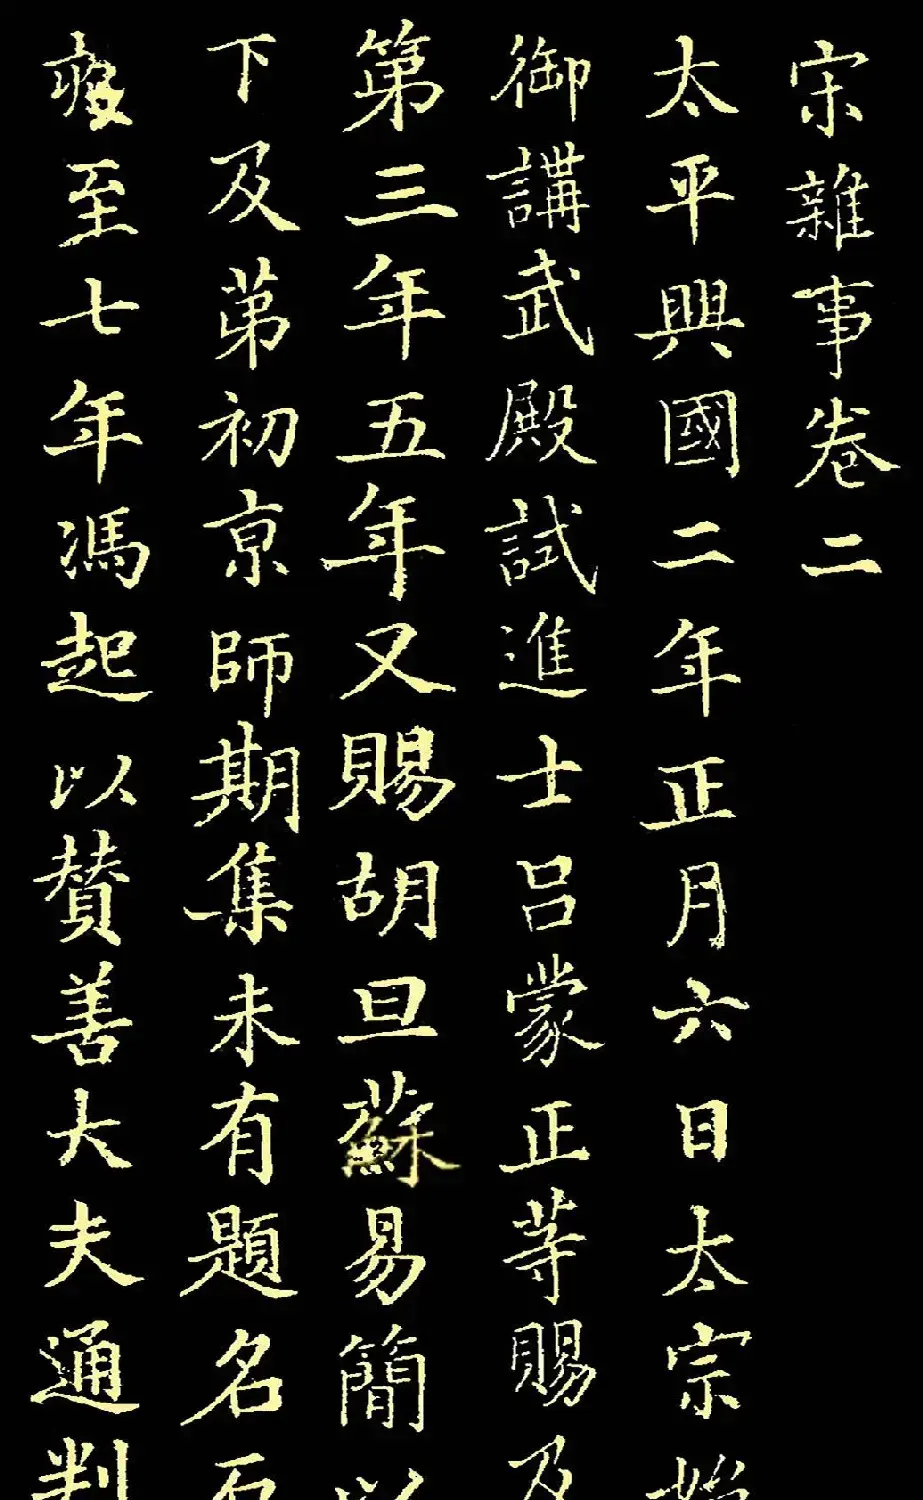 宋雜事卷二
太平興國二年正月六日太宗始
御講武殿試進士呂蒙正等賜及
第三年五年又賜胡旦蘇易簡以
下及第初京師期集未有題名石
至七年馮起以贊善大夫通判